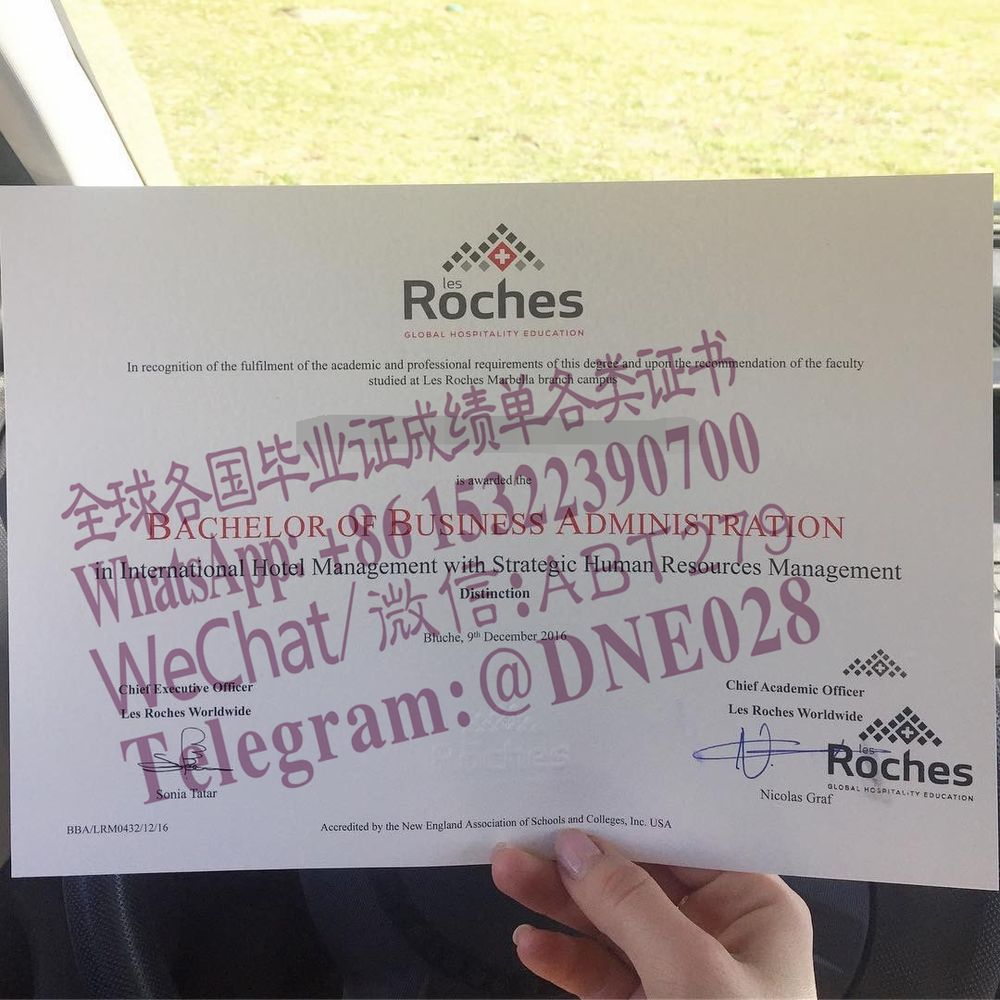 les
Roches
GLOBAL HOSPITALITY EDUCATION
In recognition of the fulfilment of the academic and professional requirements of this degree and upon the recommendation of the faculty
studied at Les Roches Marbella branch campus
全球各国毕业证成绩单各类证书
is awarded the
WhatsApp: +86 15322390700
BACHELOR OF BUSINESS ADMINISTRATION
in International Hotel Management with Strategic Human Resources Management
Distinction
WeChat/微信:ABT279
Bluche, 9th December 2016
Telegram:@DNE028
Chief Executive Officer
Les Roches Worldwide
Sonia Tatar
Chief Academic Officer
Les Roches Worldwide
Nicolas Graf
les
Roches
GLOBAL HOSPITALITY EDUCATION
Roches
BBA/LRM0432/12/16
Accredited by the New England Association of Schools and Colleges, Inc. USA